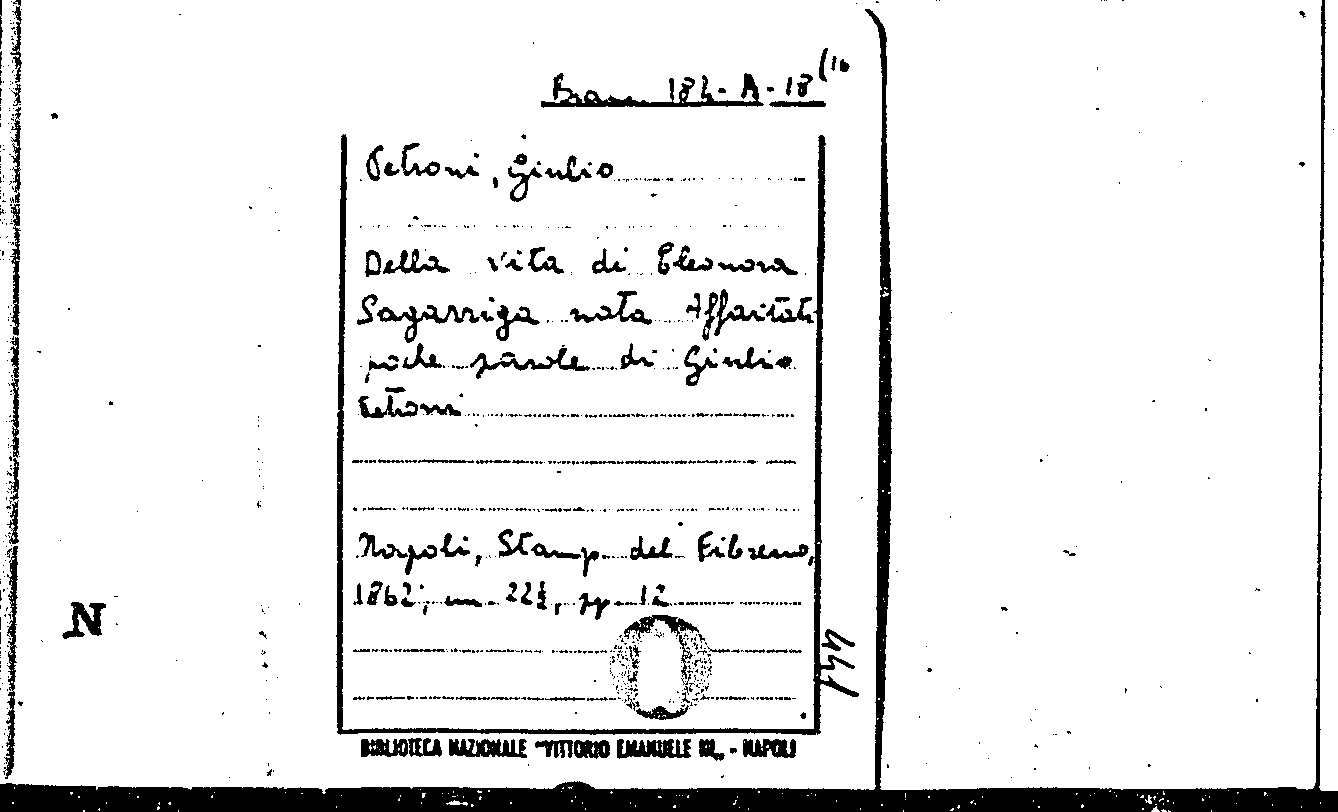 Branc. 184-A-18 (16
Petroni, Giulio
Della vita di Eleonora
Sagarriga nata Affaitati
poche parole di Giulio
Petroni
Napoli, Stamp. del Fibreno,
1862; cm. 22½, pp. 12
N
BIBLIOTECA NAZIONALE "VITTORIO EMANUELE III„ - NAPOLI